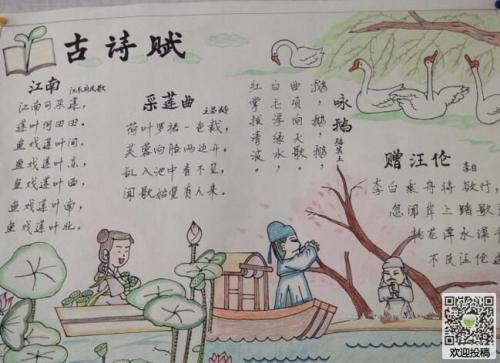 古诗赋
江南
江南可采莲，
莲叶何田田。
鱼戏莲叶间。
鱼戏莲叶东，
鱼戏莲叶西，
鱼戏莲叶南，
鱼戏莲叶北。
采莲曲
王昌龄
荷叶罗裙一色裁，
芙蓉向脸两边开。
乱入池中看不见，
闻歌始觉有人来。
咏鹅
骆宾王
鹅，鹅，鹅，
曲项向天歌。
白毛浮绿水，
红掌拨清波。
赠汪伦
李白
李白乘舟将欲行
忽闻岸上踏歌
桃花潭水深千
不及汪伦送
欢迎投稿